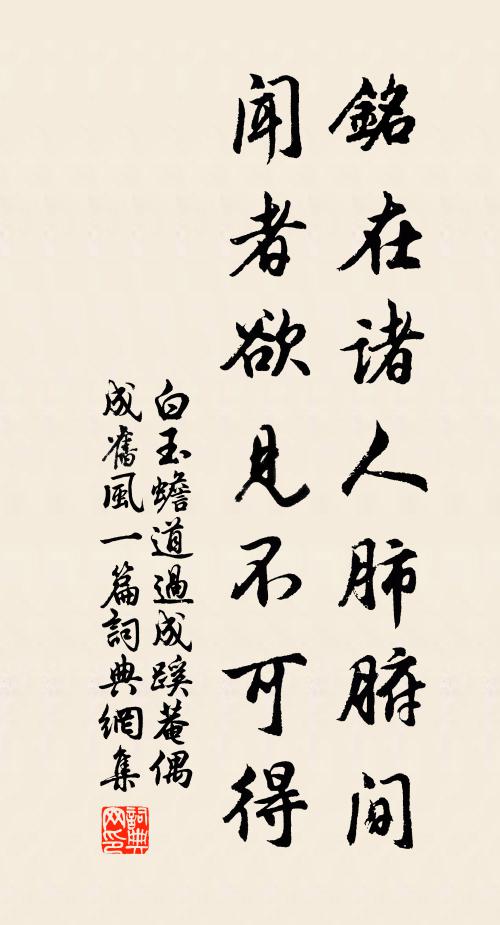 銘在諸人肺腑間
聞者欲見不可得
白玉蟾道過成蹊菴偶
成舊風一篇詞典網集
詞典
网印